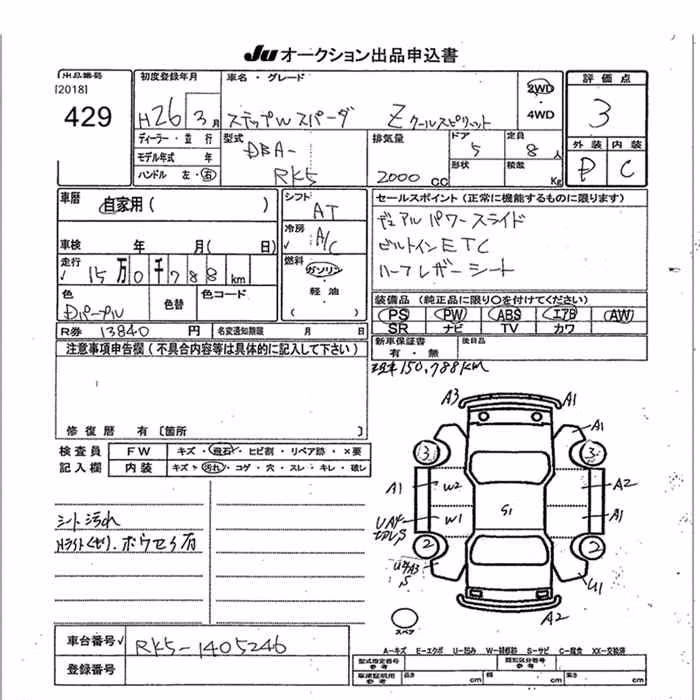 JU オークション出品申込書
出品番号
[2018]
429
初度登録年月
H26 3月
車名・グレード
ステップW スパーダ Z クールスピリット
2WD
・
4WD
評価点
3
外装 内装
D C
ディーラー・並行
モデル年式 年
ハンドル 左・右
型式
DBA-
RK5
排気量
2000 CC
ドア
5
形状
定員
8人
積載
Kg
車歴
自家用( )
シフト
AT
車検 年 月( 日)
冷房
A/C
走行
√ 15万0千788km
燃料
ガソリン
・
軽油
( )
色
Dパープル
色替
色コード
R券 13840 円
名変通知期限 月 日
セールスポイント(正常に機能するものに限ります)
デュアルパワースライド
ビルトインETC
ハーフレザーシート
装備品(純正品に限り○を付けてください)
PS PW ABS エアB AW
SR ナビ TV カワ
新車保証書
有・無
後日品
注意事項申告欄(不具合内容等は具体的に記入して下さい)
修復歴 有〔箇所 〕
150,788km
検査員
記入欄
FW キズ・飛石・ヒビ割・リペア跡・×要
内装 キズ・汚れ・コゲ・穴・スレ・キレ・破レ
シート汚れ
A3 A1
A1
3 3
A1 W2 A2
W1 S1 A1
2 2
U1
A2
スペア
車台番号√ RK5-1405246
登録番号
A-キズ E-エクボ U-凹み W-補修跡 S-サビ C-腐食 XX-交換済
型式指定番号
参考
類別区分番号
参考
車庫証明用
参考
長さ cm 幅 cm 高さ cm